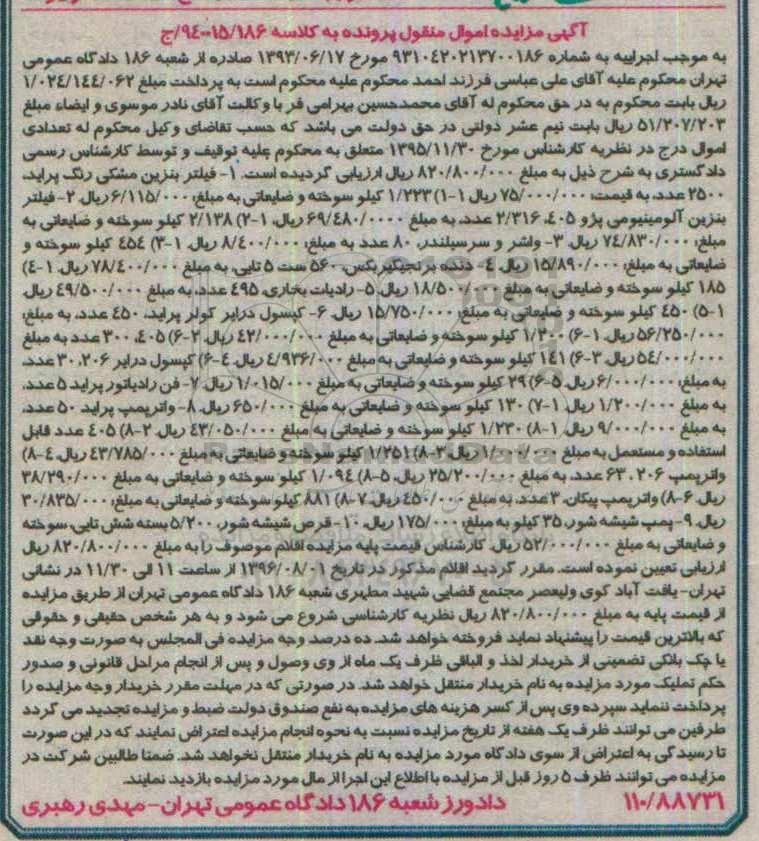 آگهی مزایده اموال منقول پرونده به کلاسه ۹۴۰۰۱۵/۱۸۶/ج
به موجب اجراییه به شماره ۹۳۱۰۴۲۰۲۱۳۷۰۰۱۸۶ مورخ ۱۳۹۳/۰۶/۱۷ صادره از شعبه ۱۸۶ دادگاه عمومی
تهران محکوم علیه آقای علی عباسی فرزند احمد محکوم علیه محکوم است به پرداخت مبلغ ۱/۰۲۴/۱۴۴/۰۶۲
ریال بابت محکوم به در حق محکوم له آقای محمدحسین بهرامی فر با وکالت آقای نادر موسوی و ایضاء مبلغ
۵۱/۲۰۷/۲۰۳ ریال بابت نیم عشر دولتی در حق دولت می باشد که حسب تقاضای وکیل محکوم له تعدادی
اموال درج در نظریه کارشناس مورخ ۱۳۹۵/۱۱/۳۰ متعلق به محکوم علیه توقیف و توسط کارشناس رسمی
دادگستری به شرح ذیل به مبلغ ۸۲۰/۸۰۰/۰۰۰ ریال ارزیابی گردیده است. ۱- فیلتر بنزین مشکی رنگ پراید،
۲۵۰۰ عدد، به قیمت: ۷۵/۰۰۰/۰۰۰ ریال ۱-۱) ۱/۲۲۳ کیلو سوخته و ضایعاتی به مبلغ: ۶/۱۱۵/۰۰۰ ریال. ۲- فیلتر
بنزین آلومینیومی پژو ۴۰۵، ۲/۳۱۶ عدد، به مبلغ ۶۹/۴۸۰/۰۰۰۰ ریال. ۱-۲) ۲/۱۳۸ کیلو سوخته و ضایعاتی به
مبلغ: ۷۴/۸۳۰/۰۰۰ ریال. ۳- واشر و سرسیلندر، ۸۰ عدد به مبلغ: ۸/۴۰۰/۰۰۰ ریال. ۱-۳) ۴۵۴ کیلو سوخته و
ضایعاتی به مبلغ: ۱۵/۸۹۰/۰۰۰ ریال. ۴- دنده برنجیگیربکس، ۵۶۰ ست ۵ تایی، به مبلغ ۷۸/۴۰۰/۰۰۰ ریال. ۱-۴)
۱۸۵ کیلو سوخته و ضایعاتی به مبلغ ۱۸/۵۰۰/۰۰۰ ریال. ۵- رادیات بخاری، ۴۹۵ عدد، به مبلغ ۴۹/۵۰۰/۰۰۰ ریال.
۱-۵) ۴۵۰ کیلو سوخته و ضایعاتی به مبلغ: ۱۵/۷۵۰/۰۰۰ ریال. ۶- کپسول درایر کولر پراید، ۴۵۰ عدد، به مبلغ:
۵۶/۲۵۰/۰۰۰ ریال. ۱-۶) ۱/۲۰۰ کیلو سوخته و ضایعاتی به مبلغ ۴۲/۰۰۰/۰۰۰ ریال. ۲-۶) ۴۰۵، ۳۰۰ عدد به مبلغ
۵۴/۰۰۰/۰۰۰ ریال. ۳-۶) ۱۴۱ کیلو سوخته و ضایعاتی به مبلغ ۴/۹۳۶/۰۰۰ ریال. ۴-۶) کپسول درایر ۲۰۶، ۳۰ عدد،
به مبلغ: ۶/۰۰۰/۰۰۰ ریال. ۵-۶) ۲۹ کیلو سوخته و ضایعاتی به مبلغ ۱/۰۱۵/۰۰۰ ریال. ۷- فن رادیاتور پراید ۵ عدد،
به مبلغ ۱/۲۰۰/۰۰۰ ریال. ۱-۷) ۱۳۰ کیلو سوخته و ضایعاتی به مبلغ ۶۵۰/۰۰۰ ریال. ۸- واترپمپ پراید ۵۰ عدد،
به مبلغ ۹/۰۰۰/۰۰۰ ریال. ۱-۸) ۱/۲۳۰ کیلو سوخته و ضایعاتی به مبلغ ۴۳/۰۵۰/۰۰۰ ریال. ۲-۸) ۴۰۵ عدد قابل
استفاده و مستعمل به مبلغ ۱/۰۰۰/۰۰۰ ریال. ۳-۸) ۱/۲۵۱ کیلو سوخته و ضایعاتی به مبلغ ۴۳/۷۸۵/۰۰۰ ریال. ۴-۸)
واترپمپ ۲۰۶، ۶۳ عدد، به مبلغ ۲۵/۲۰۰/۰۰۰ ریال. ۵-۸) ۱/۰۹۴ کیلو سوخته و ضایعاتی به مبلغ ۳۸/۲۹۰/۰۰۰
ریال. ۶-۸) واترپمپ پیکان، ۳ عدد، به مبلغ ۴۵۰/۰۰۰ ریال. ۷-۸) ۸۸۱ کیلو سوخته و ضایعاتی به مبلغ: ۳۰/۸۳۵/۰۰۰
ریال. ۹- پمپ شیشه شور، ۳۵ کیلو به مبلغ: ۱۷۵/۰۰۰ ریال. ۱۰- قرص شیشه شور، ۵/۲۰۰ بسته شش تایی، سوخته
و ضایعاتی به مبلغ ۵۲/۰۰۰/۰۰۰ ریال. کارشناس قیمت پایه مزایده اقلام موصوف را به مبلغ ۸۲۰/۸۰۰/۰۰۰ ریال
ارزیابی تعیین نموده است. مقرر گردید اقلام مذکور در تاریخ ۱۳۹۶/۰۸/۰۱ از ساعت ۱۱ الی ۱۱/۳۰ در نشانی
تهران- یافت آباد کوی ولیعصر مجتمع قضایی شهید مطهری شعبه ۱۸۶ دادگاه عمومی تهران از طریق مزایده
از قیمت پایه به مبلغ ۸۲۰/۸۰۰/۰۰۰ ریال نظریه کارشناسی شروع می شود و به هر شخص حقیقی و حقوقی
که بالاترین قیمت را پیشنهاد نماید فروخته خواهد شد. ده درصد وجه مزایده فی المجلس به صورت وجه نقد
یا چک بانکی تضمینی از خریدار اخذ و الباقی ظرف یک ماه از وی وصول و پس از انجام مراحل قانونی و صدور
حکم تملیک مورد مزایده به نام خریدار منتقل خواهد شد. در صورتی که در مهلت مقرر خریدار وجه مزایده را
پرداخت ننماید سپرده وی پس از کسر هزینه های مزایده به نفع صندوق دولت ضبط و مزایده تجدید می گردد
طرفین می توانند ظرف یک هفته از تاریخ مزایده نسبت به نحوه انجام مزایده اعتراض نمایند که در این صورت
تا رسیدگی به اعتراض از سوی دادگاه مورد مزایده به نام خریدار منتقل نخواهد شد. ضمنا طالبین شرکت در
مزایده می توانند ظرف ۵ روز قبل از مزایده با اطلاع این اجرا از مال مورد مزایده بازدید نمایند.
۱۱۰/۸۸۷۳۱ دادورز شعبه ۱۸۶ دادگاه عمومی تهران- مهدی رهبری